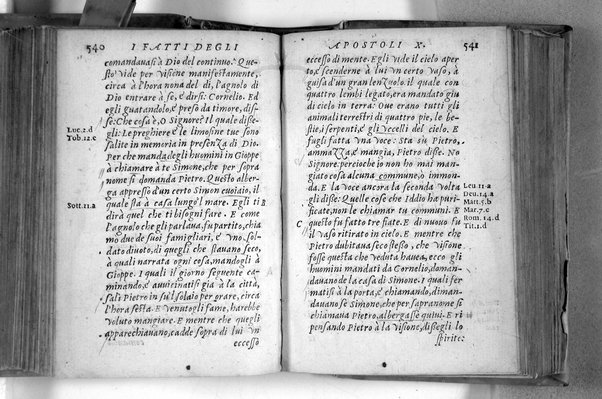 540 I FATTI DEGLI
comandauasi à Dio del continuo. Que-
sto vide per visione manifestamente,
circa à l'hora nona del dì, l'agnolo di
Dio entrare à se, e dirsi: Cornelio. Ed
egli guatandolo, e preso da timore, dis-
se: Che cosa è, O Signore? Il quale disse-
Luc. 2. d
gli: Le preghiere e le limosine tue sono
Tob. 12. c
salite in memoria in presenza di Dio.
Per che manda degli huomini in Gioppe
à chiamare à te Simone, che per sopra
nome si domanda Pietro. Questo alber-
ga appresso d'un certo Simon cuoiaio, il
Sott. 11. a
quale stà à casa lungo'l mare. Egli ti
dirà quel che ti bisogni fare. E come
l'agnolo che gli parlaua, fu partito, chia
mo due de suoi famigliari, e vno sol-
dato diuoto, di quegli che stauano seco,
à quali narrata ogni cosa, mandogli à
Gioppe. I quali il giorno seguente ca-
minando, e auuicinatisi già à la città,
salì Pietro in sul solaio per orare, circa
l'hora sesta. E venutogli fame, harebbe
voluto mangiare. E mentre che quegli
apparecchiauano, cadde sopra di lui vn
eccesso
APOSTOLI X. 541
eccesso di mente. E gli vide il cielo aper
to, e scenderne à lui vn certo vaso, à
guisa d'un gran lenzuolo, il quale con
quattro lembi legato, era mandato giu
di cielo in terra: Oue erano tutti gli
animali terrestri di quattro pie, le be-
stie, i serpenti, e gli vccelli del cielo. E
fugli fatta vna voce: Sta sù Pietro,
ammazza, e mangia, Pietro disse. No
Signore: percioche io non ho mai man-
giato cosa alcuna commune, o immon-
da. E la voce ancora la seconda volta
Leu 11. a
gli disse: Quelle cose che Iddio ha puri-
Deu. 14. a
ficate, non le chiamar tu communi. E
Matt. 5. b
C questo fu fatto tre fiate. E di nuouo fu
Mar. 7. c
il vaso ritirato in cielo. E mentre che
Rom. 14. d
Pietro dubitaua seco stesso, che visione
Tit. 1. d
fosse questa che veduta haueа, ecco gli
huomini mandati da Cornelio, doman-
dauano de la casa di Simone. I quali fer
matisi à la porta, e chiamando, diman-
dauano se Simone, che per sopranome si
chiamaua Pietro, albergasse quiui. E ri
pensando Pietro à la visione, dissegli lo
spirito: